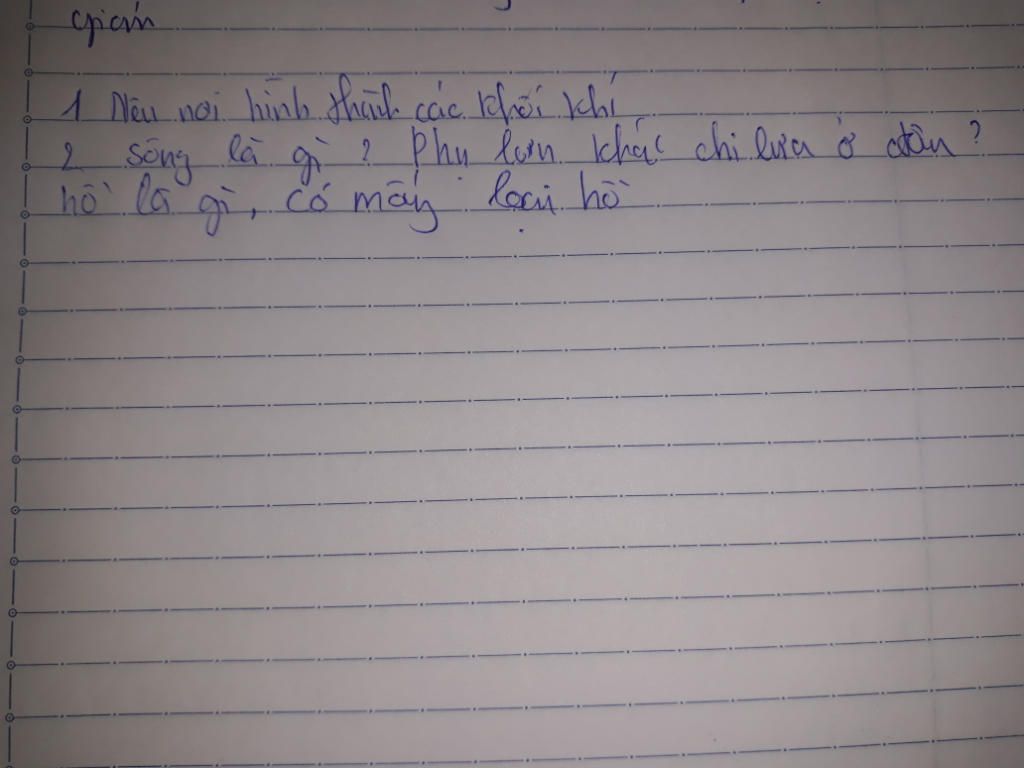 gian
1 Nêu nơi hình thành các khối khí
2 sông là gì? Phụ lưu khác chi lưu ở đâu?
hồ là gì, có mấy loại hồ